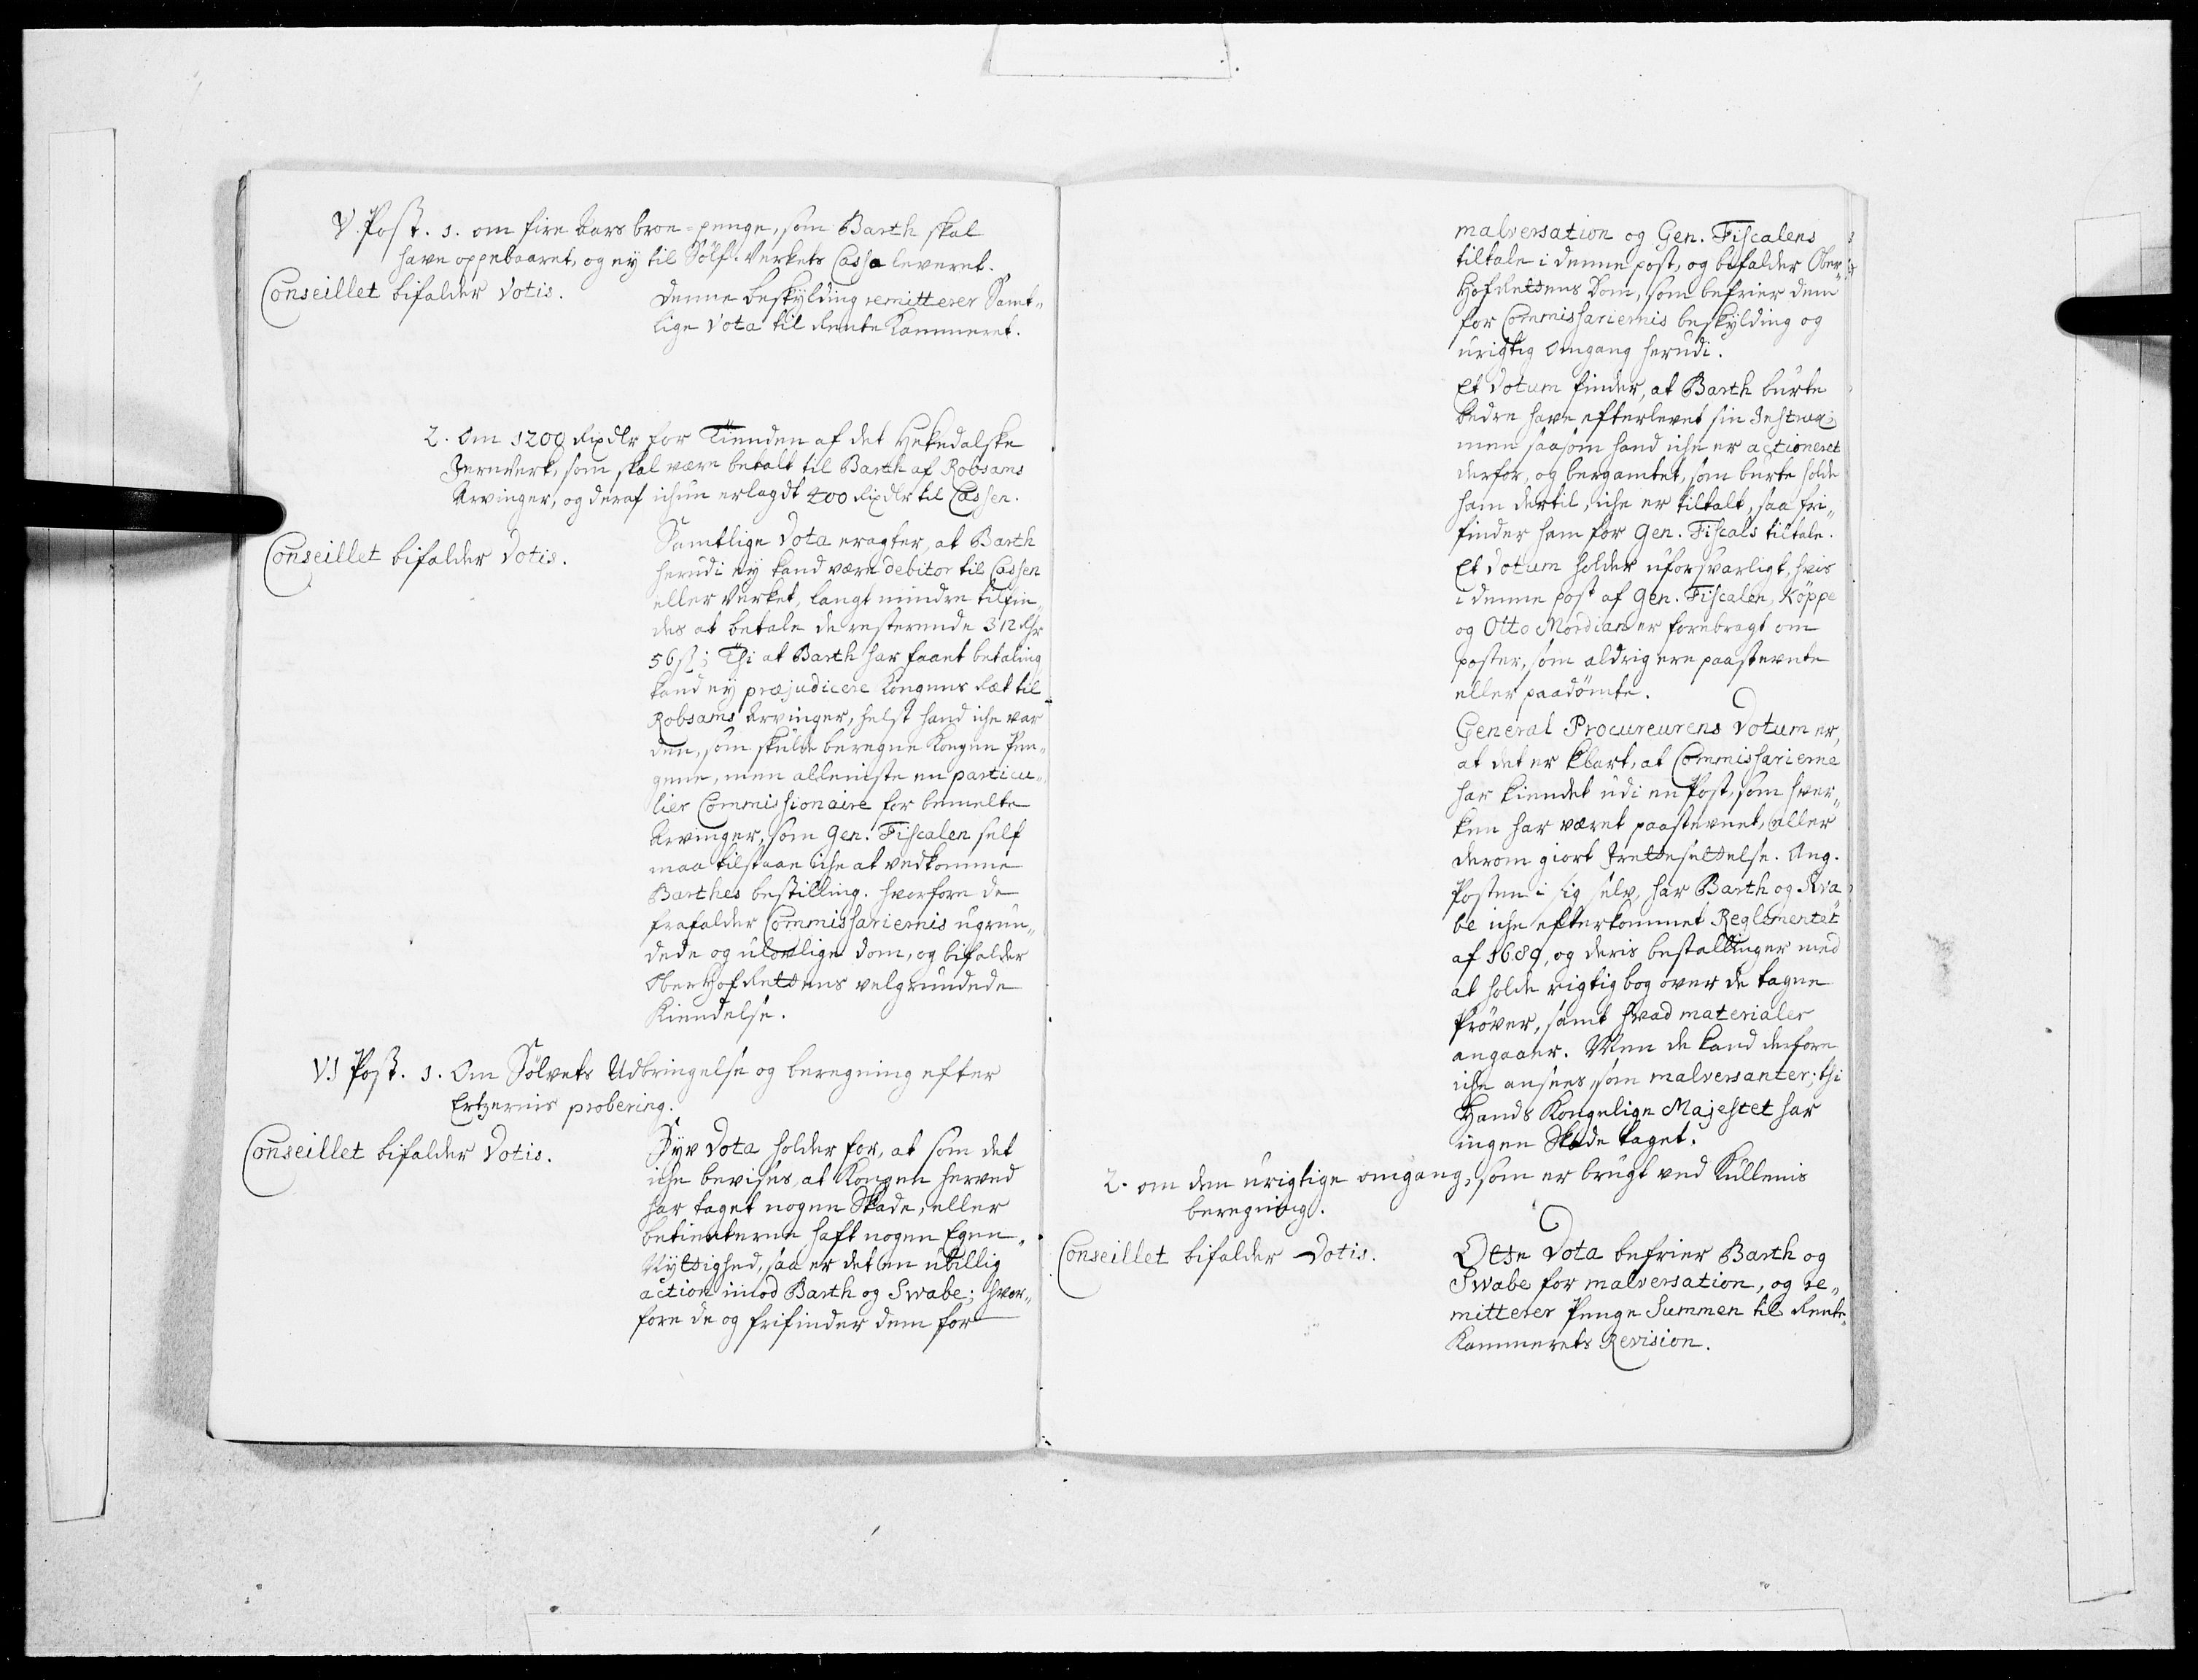 V. Post. 1. om fire Aars broe-penge, som Barth skal
have oppebaaret, og ey til Sölf-Verkets Cassa leveret.
Conseillet bifalder Votis.
Denne beskylding remitterer Samt-
lige Vota til Rente Kammeret.
2. Om 1200 Rixdlr for Tienden af det Hekedalske
Jernverk, som skal være betalt til Barth af Robsams
Arvinger, og deraf ichun erlagdt 400 Rixdlr til Cassen.
Conseillet bifalder Votis.
Samtlige Vota eragter, at Barth
herudi ey kand være debitor til Cassen
eller Verket, langt mindre tilfin-
des at betale de resterende 312 Rdr
56 ß; Thi at Barth har faaet betaling
kand ey præjudicere Kongens Ræt til
Robsams Arvinger, helst hand iche var
den, som skulde beregne Kongen Pen-
gene, men alleniste en particu-
lier Commissionaire for bemelte
Arvinger, som Gen. Fiscalen self
maa tilstaae iche at vedkomme
Barthes bestilling. hvorfore de
frafalder Commissariernis ugrun-
dede og ulovlige dom, og bifalder
OberHofRettens velgrundede
Kiendelse.
VI Post. 1. Om Sölvets Udbringelse og beregning efter
Ertzernis probering.
Conseillet bifalder Votis.
Syv Vota holder for, at som det
iche bevises, at Kongen herved
har taget nogen Skade, eller
betienterne haft nogen Egen-
Nyttighed, saa er det en ubillig
action imod Barth og Swabe; hvor-
fore de og frifinder dem for
malversation og Gen. Fiscalens
tiltale i denne post, og bifalder Ober-
HofRettens Dom, som befrier dem
for Commissariernis beskylding og
urigtig Omgang herudi.
Et Votum finder, at Barth burte
bedre have efterlevet sin Instrux;
men saasom hand iche er actioneret
derfor, og bergamtet, som burte holde
ham dertil, iche er tiltalt, saa fri-
finder ham for Gen. Fiscals tiltale.
Et Votum holder uforsvarligt, hvis
i denne post af Gen. Fiscalen, Köppe
og Otto Mordian er forebragt om
poster, som aldrig ere paastevnte
eller paadömte.
General Procureurens Votum er,
at det er klart, at Commissarierne
har kiendet udi en Post, som hver-
ken har været paastevnet, eller
derom giort Jrettesettelse. Ang.
Posten i sig selv, har Barth og Sva
be iche efterkommet Reglementet
af 1689, og deris bestallinger med
at holde rigtig bog over de tagne
Pröver, samt hvad materialer
angaaer. Men de kand derfore
iche ansees, som malversanter; thi
Hands Kongelige Majestet har
ingen Skade taget.
2. om den urigtige omgang, som er brugt ved Kullenis
beregning.
Conseillet bifalder Votis.
Otte Vota befrier Barth og
Swabe for malversation, og re-
mitterer Penge Summen til Rente-
Kammerets Revision.